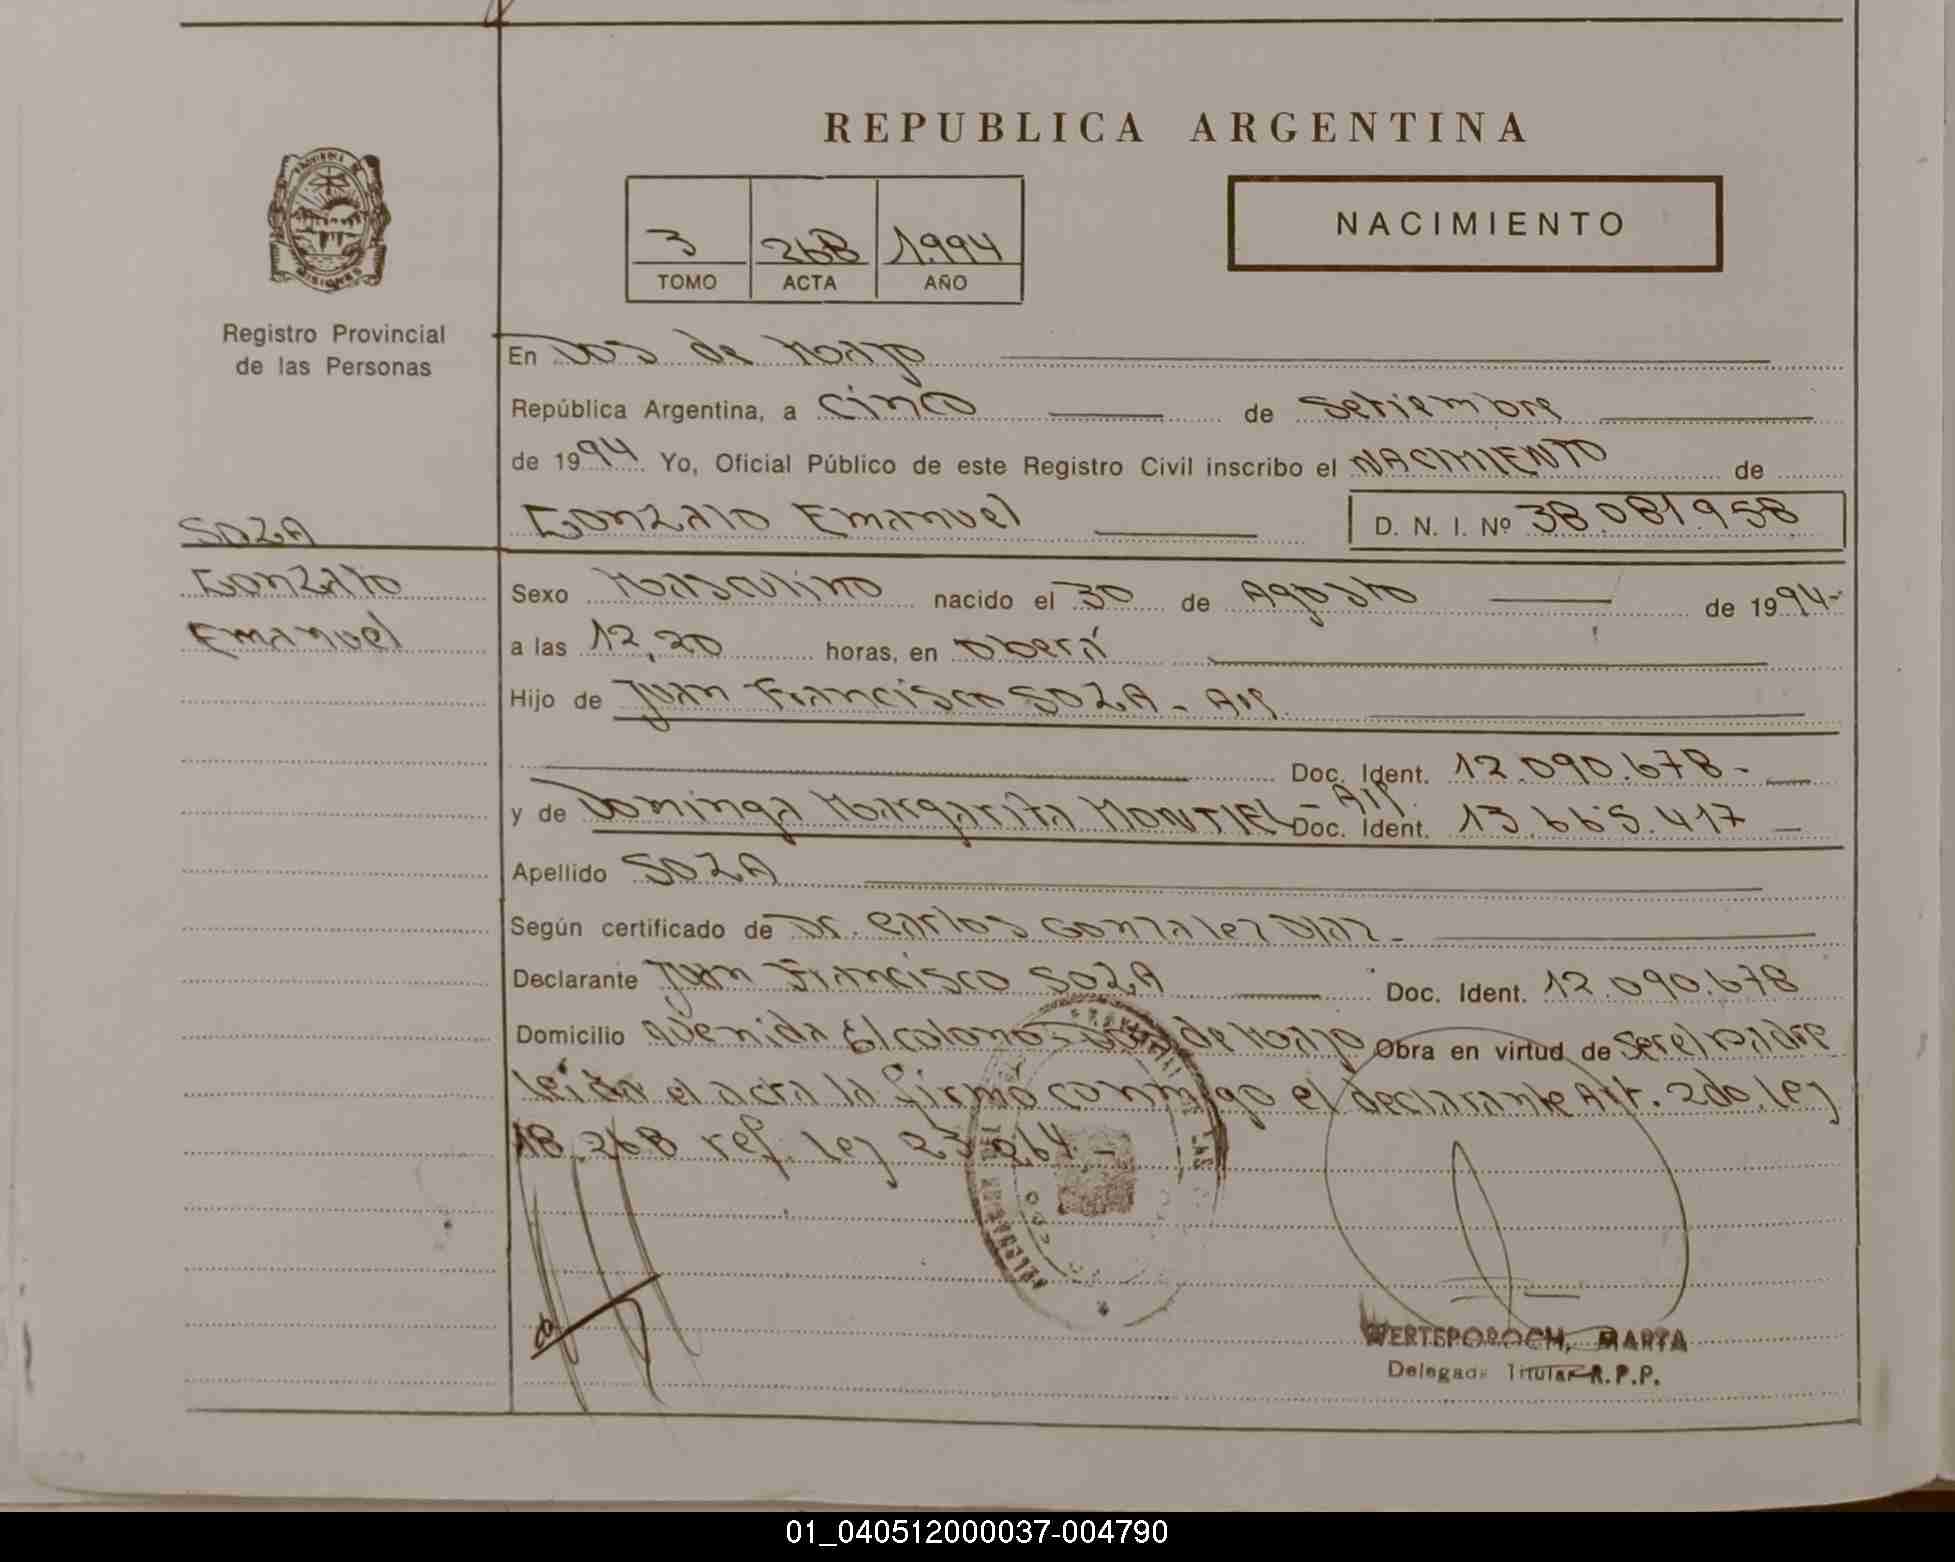 REPUBLICA ARGENTINA
NACIMIENTO
3 268 1.994
TOMO ACTA AÑO
Registro Provincial
de las Personas
MISIONES
En Dos de Mayo
República Argentina, a cinco de Setiembre
de 1994 Yo, Oficial Público de este Registro Civil inscribo el NACIMIENTO de
Gonzalo Emanuel D. N. I. Nº 38.081.958
SOZA
Gonzalo
Emanuel
Sexo Masculino nacido el 30 de Agosto de 1994-
a las 12,20 horas, en Oberá
Hijo de Juan Francisco SOZA - Arg.
Doc. Ident. 12.090.678-
y de Dominga Margarita MONTIEL - Arg. Doc. Ident. 13.665.417
Apellido SOZA
Según certificado de Dr. Carlos Gonzalez Diaz-
Declarante Juan Francisco SOZA Doc. Ident. 12.090.678
Domicilio Avenida El colono- Dos de Mayo Obra en virtud de Ser el Padre
leida el acta la firmó conmigo el declarante Art. 2do. ley
18.268 ref. ley 23.264.-
WERTEPOROCH, MARTA
Delegada Titular R.P.P.
01_040512000037-004790